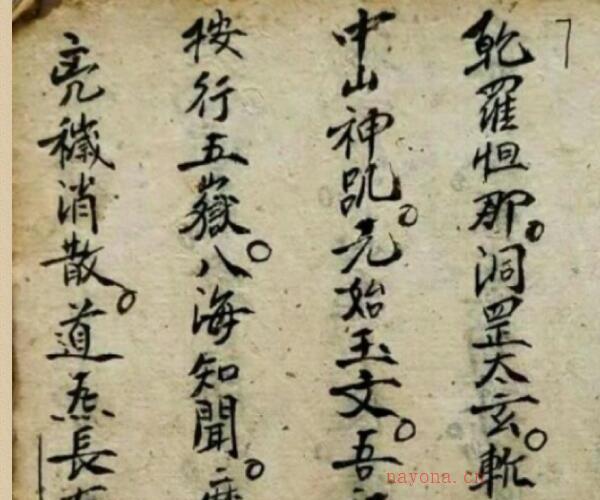 乾羅怛那。洞罡太玄。斬
中山神呪。元始玉文。吾
按行五嶽。八海知聞。
穢消散。道炁長
nayona.cn